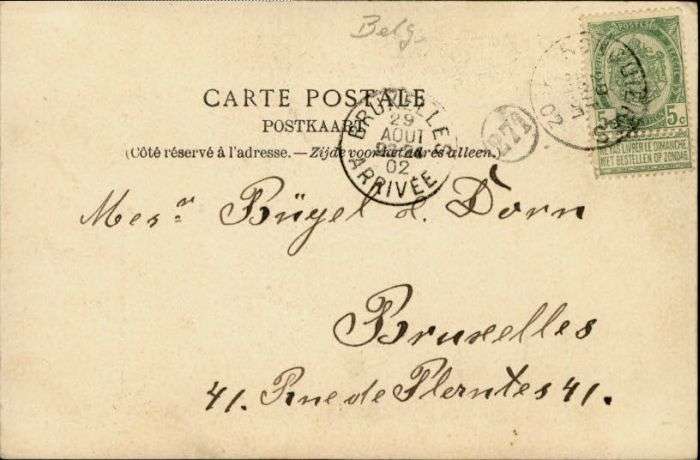 Belg.
POSTEN
5c 5c
NE PAS LIVRER LE DIMANCHE
NIET BESTELLEN OP ZONDAG
CARTE POSTALE
POSTKAART
(Côté réservé à l'adresse. — Zijde voor het adres alleen.)
BRUXELLES
29
AOUT
02
ARRIVÉE
Mesrs Büyel & Dorn
Bruxelles
41. Rue de Flerntes 41.